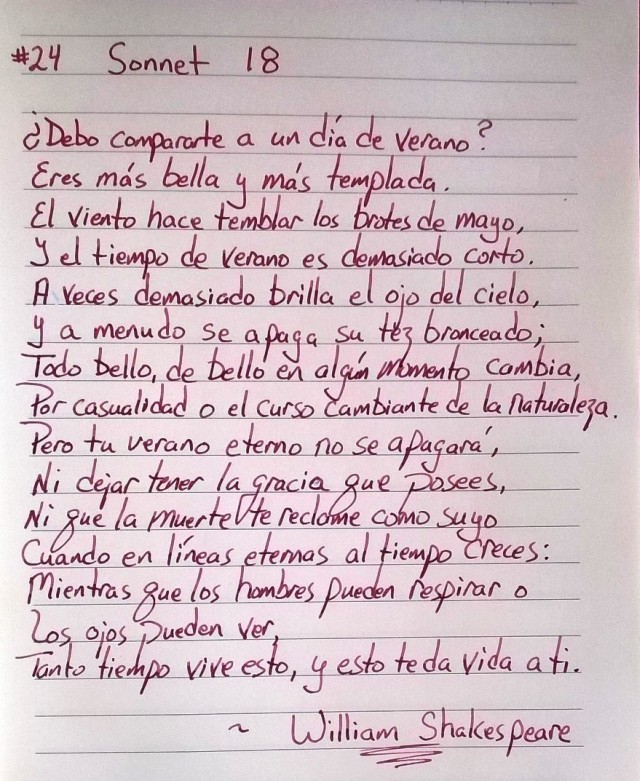 #24 Sonnet 18
¿Debo compararte a un día de verano?
Eres más bella y más templada.
El viento hace temblar los brotes de mayo,
Y el tiempo de verano es demasiado corto.
A veces demasiado brilla el ojo del cielo,
y a menudo se apaga su tez bronceado;
Todo bello, de bello en algún momento cambia,
Por casualidad o el curso cambiante de la naturaleza.
Pero tu verano eterno no se apagará,
Ni dejar tener la gracia que posees,
Ni que la muerte te reclame como suyo
Cuando en líneas eternas al tiempo creces:
Mientras que los hombres pueden respirar o
Los ojos pueden ver,
Tanto tiempo vive esto, y esto te da vida a ti.
~ William Shakespeare